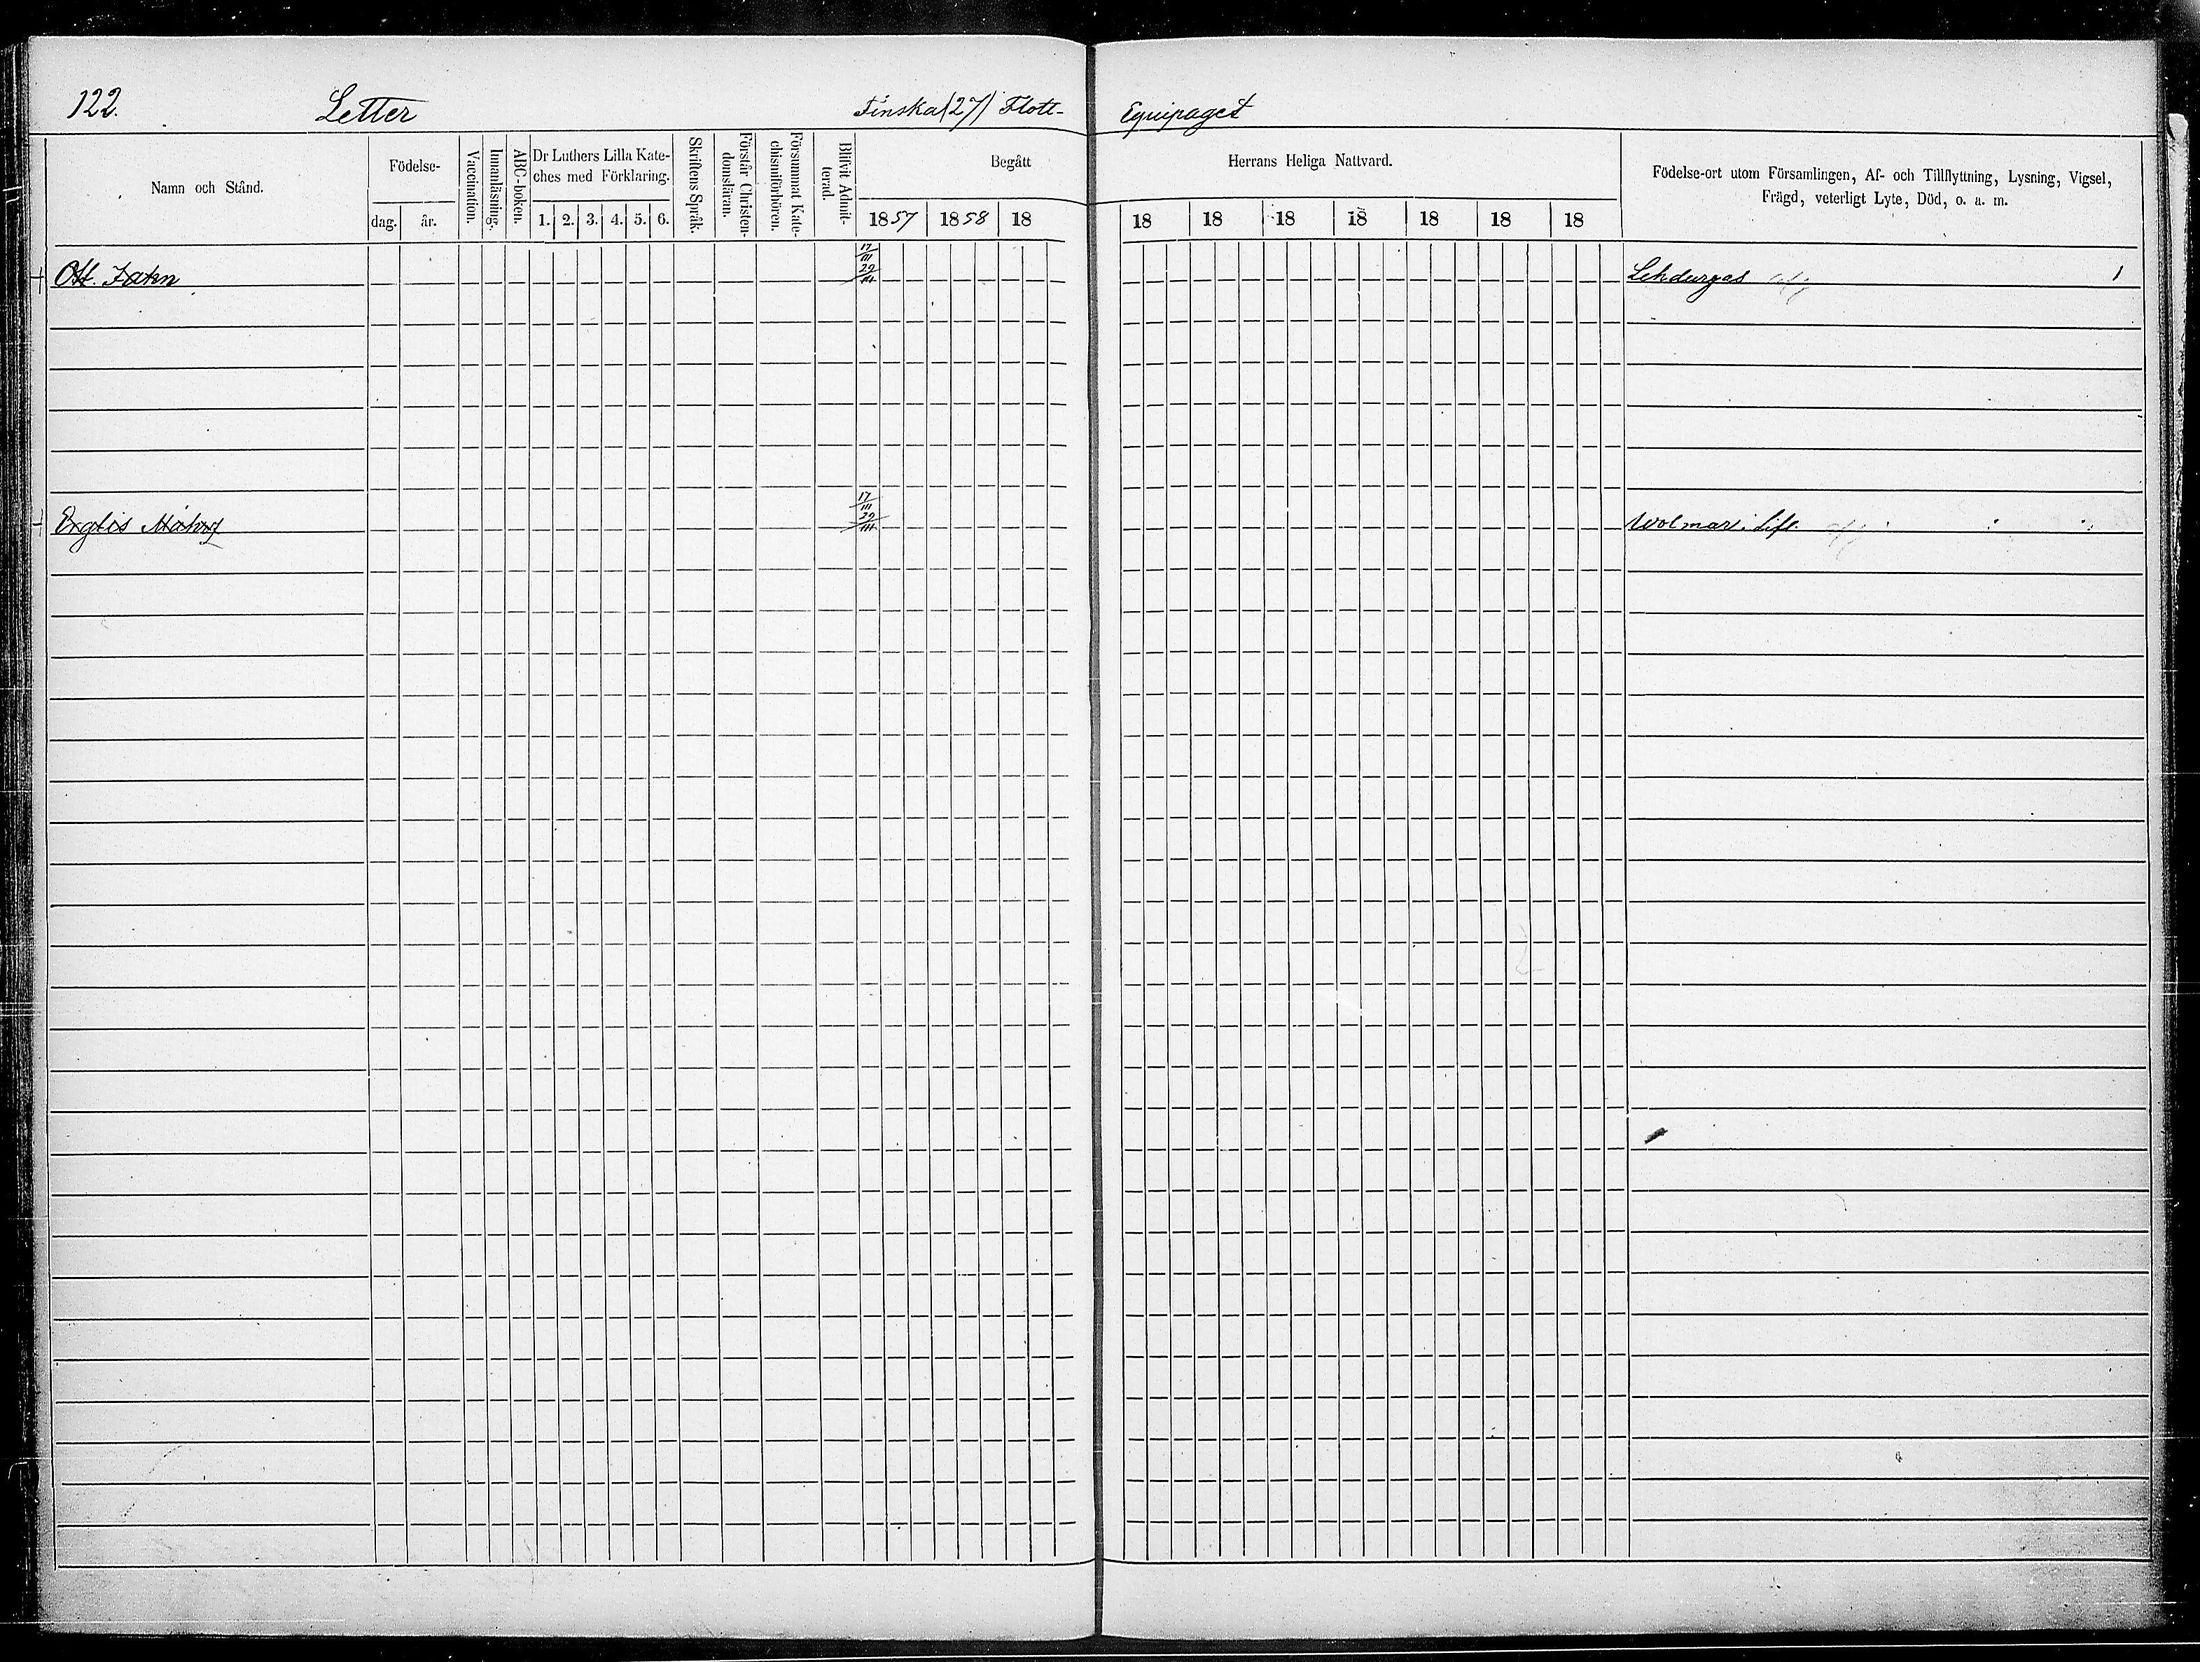 122. Letter Finska (27) Flott- Equipaget
Namn och Stånd.
Födelse-
dag. år.
Vaccination.
Innanläsning.
ABC-boken.
Dr Luthers Lilla Kate-
ches med Förklaring.
1. 2. 3. 4. 5. 6.
Skriftens Språk.
Förstår Christen-
domsläran.
Försummat Kate-
chismiförhören.
Blifvit Admit-
terad.
Begått Herrans Heliga Nattvard.
1857 1858 18 18 18 18 18 18 18 18
Födelse-ort utom Församlingen, Af- och Tillflyttning, Lysning, Vigsel,
Frägd, veterligt Lyte, Död, o. a. m.
17/III
Ott. 29/III 1
17/III
Erglis 29/III Wolmar i Lifl.